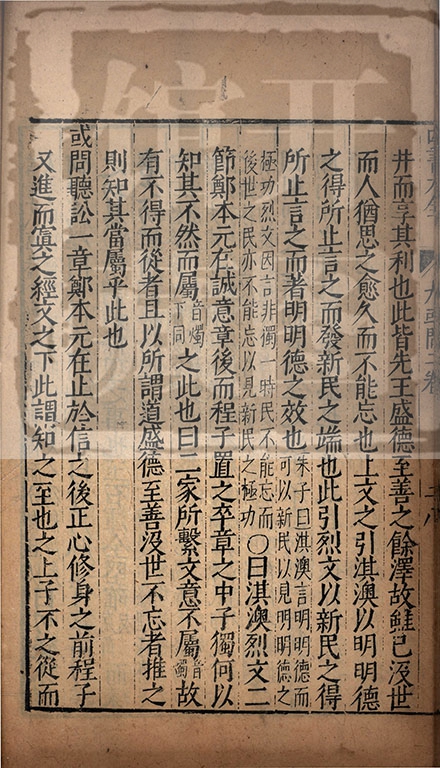 井而享其利也此皆先王盛德至善之餘澤故雖已沒世
而人猶思之愈久而不能忘也上文之引淇澳以明明德
之得所止言之而發新民之端也此引烈文以新民之得
所止言之而著明明德之效也朱子曰淇澳言明明德而可以新民以見明明德之
極功烈文因言非獨一時民不能忘而後世之民亦不能忘以見新民之極功〇曰淇澳烈文二
節鄭本元在誠意章後而程子置之卒章之中子獨何以
知其不然而屬音燭下同之此也曰二家所繫文意不屬音燭故
有不得而從者且以所謂道盛德至善沒世不忘者推之
則知其當屬乎此也
或問聽訟一章鄭本元在止於信之後正心修身之前程子
又進而寘之經文之下此謂知之至也之上子不之從而